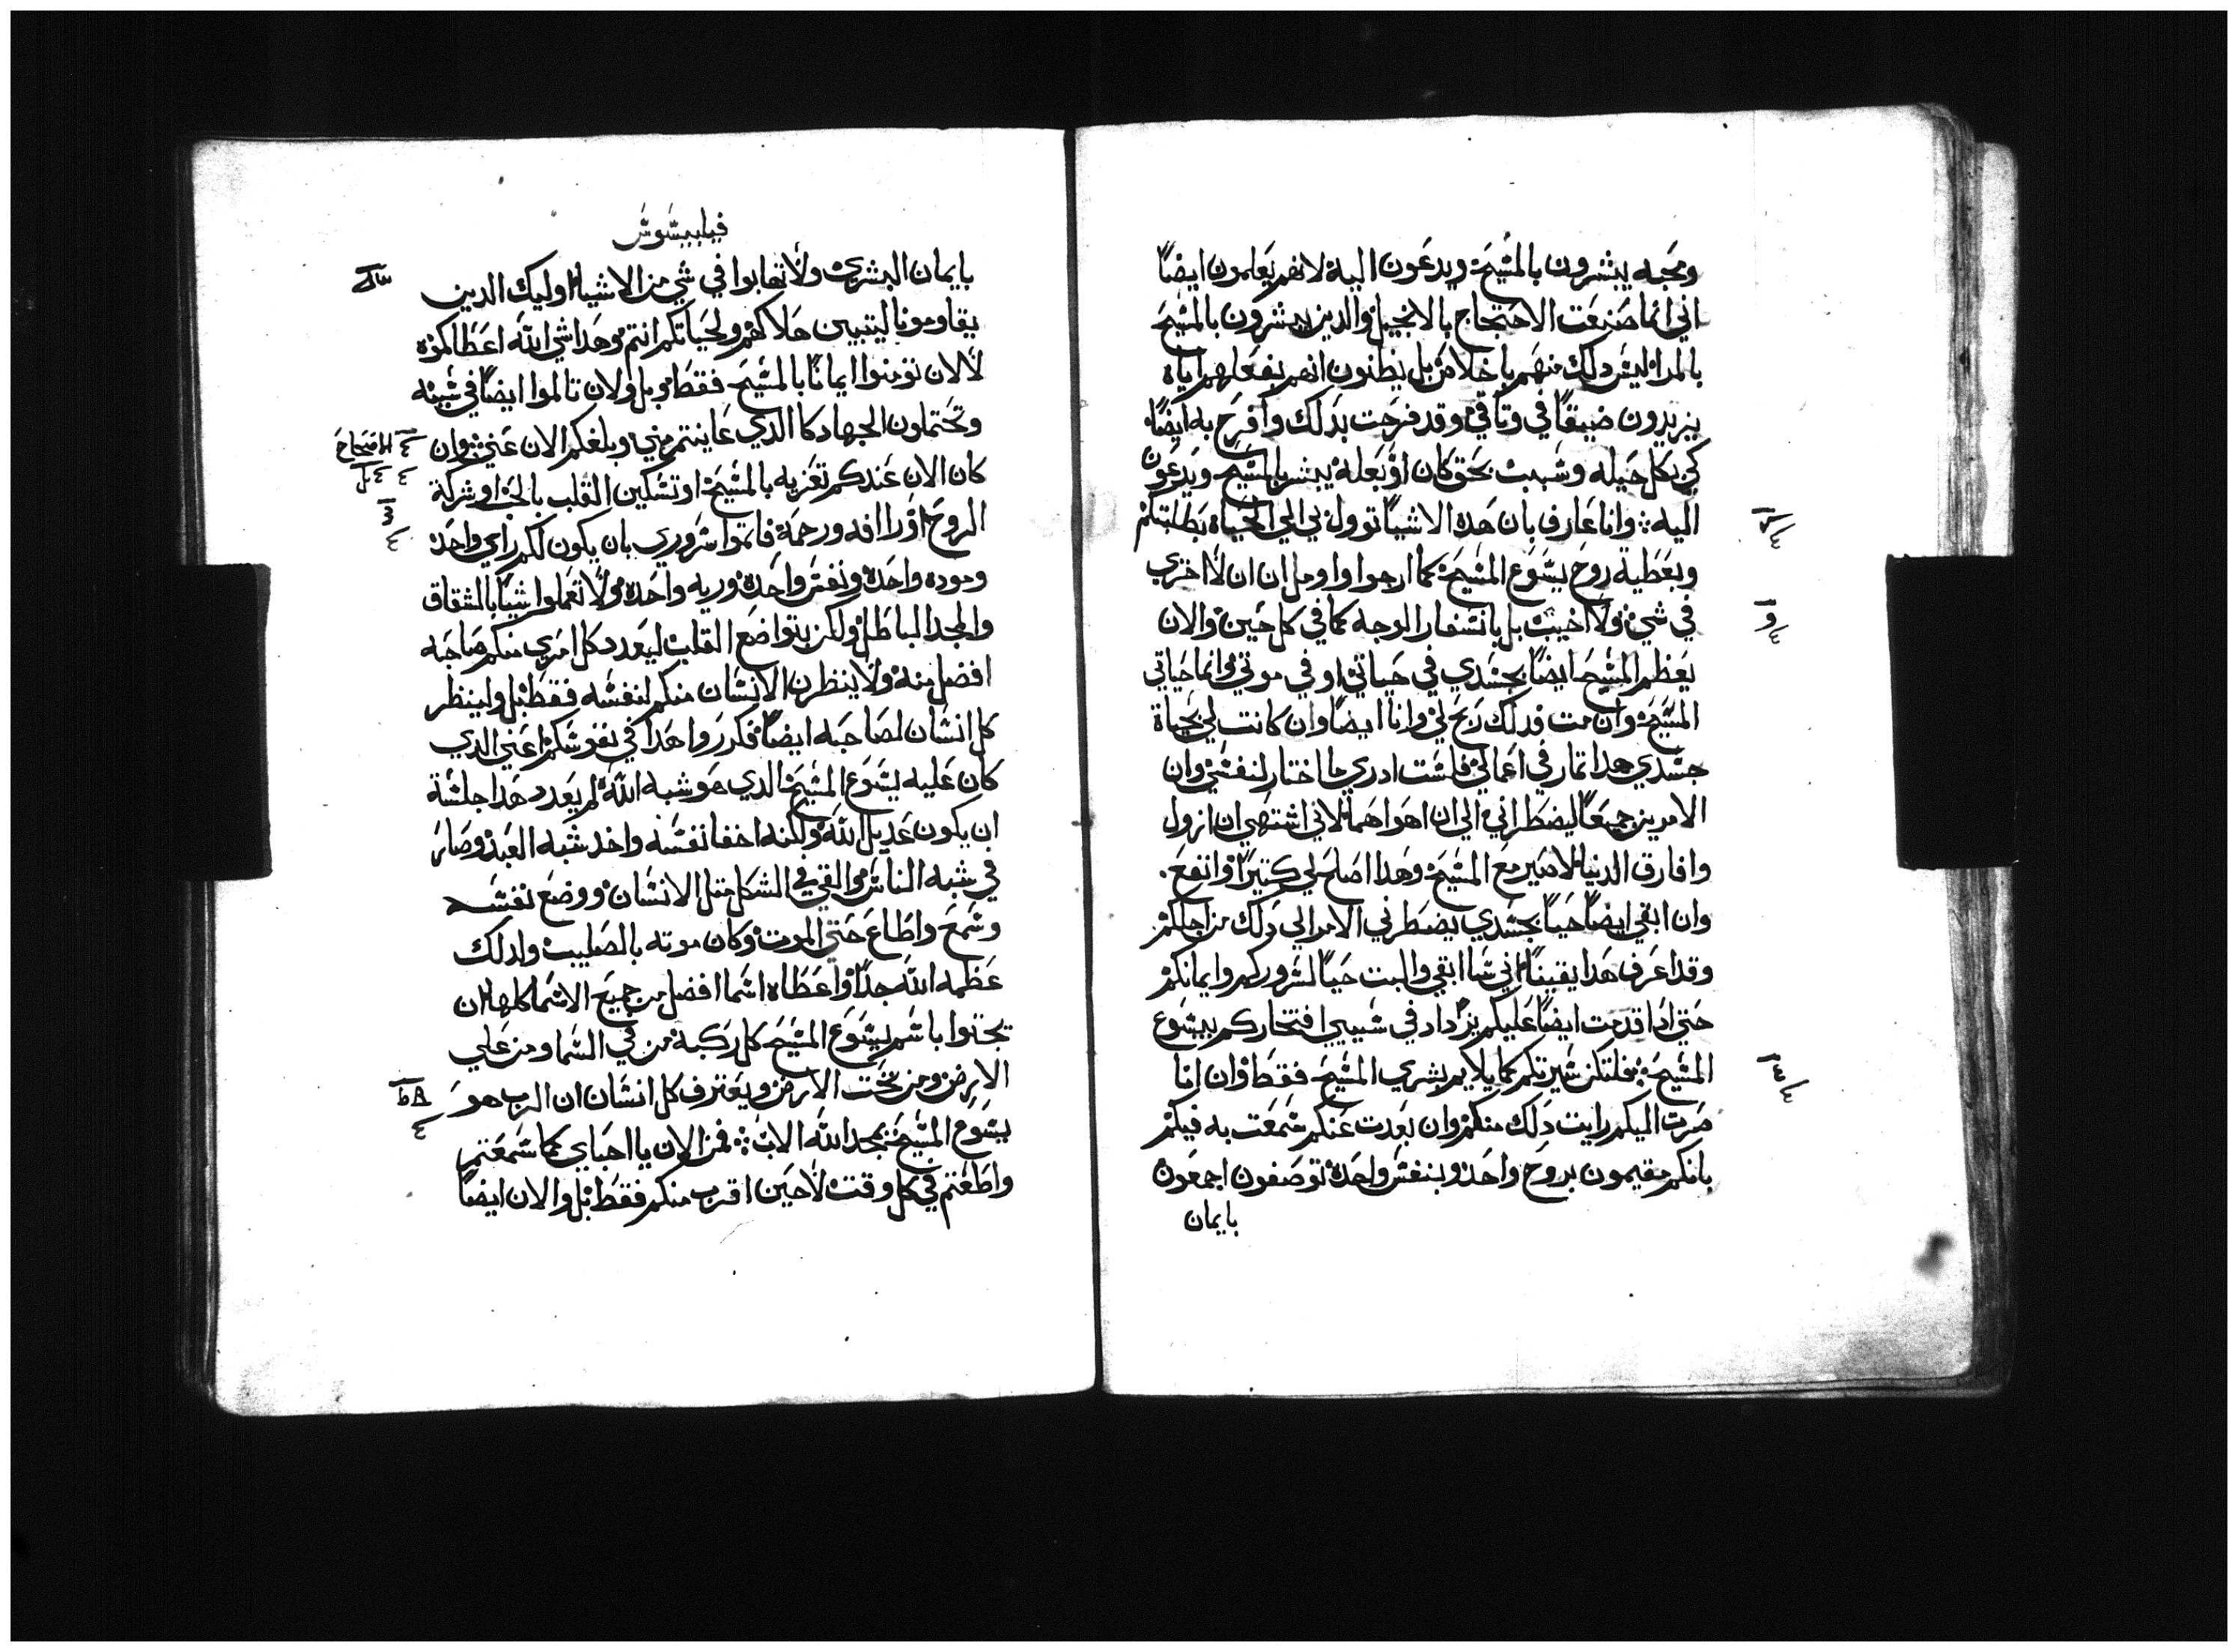 ومحبه يبشرون بالمسيح ويدعون اليه لانهم يعلمون ايضاً
اني انما صنعت الاحتجاج بالانجيل والدين يبشرون بالمسيح
بالمرا ليس دلك منهم باخلاص بل يظنون انهم بفعلهم اياه
يزيدون ضيقاً في وتاقي وقد فرحت بدلك وافرح به ايضاً
كي بكل حيله وسبب بحق كان او بعلة يبشر بالمسيح ويدعون
اليه وانا عارف بان هده الاشيا توول بي الي الحياة بطلبتكم
وبعطية روح يسوع المسيح كما ارجوا واومل ان ان لا اخزي
في شي ولا اخيب بل بانسفار الوجه كما في كل حين والان
يعظم المسيح ايضاً بجسدي في حياتي او في موتي وانما حياتي
المسيح وان مت فدلك ربح لي وانا ايضاً وان كانت لي بحياة
جسدي هدا تمار في اعمالي فلست ادري ما اختار لنفسي وان
الامرين جميعاً ليضطراني الي ان اهواهما لاني اشتهي ان ازول
وافارق الدنيا لاصير مع المسيح وهدا اصلح لي كتيراً وانفع
وان ابقي ايضاً حياً بجسدي يضطرني الامر الي دلك من اجلكم
وقد اعرف هدا يقيناً اني سا ابقي والبت حياً لسروركم وايمانكم
حتي ادا قدمت ايضاً عليكم يزداد في سببي افتخاركم بيسوع
المسيح فلتكن سيرتكم كما يلايم بشري المسيح فقط وان انا
صرت اليكم رايت دلك منكم وان بعدت عنكم سمعت به فيكم
بانكم مقيمون بروح واحد وبنفس واحدة توصفون اجمعون
بايمان
فيليبسوس
بايمان البشري ولا تهابوا في شي من الاشيا اوليك الدين
يقاومونا ليتبين هلاكهم ولحياتكم انتم وهدا شي الله اعطاكموه
لا لان تومنوا ايمانا بالمسيح فقط بل ولان تالموا ايضاً في سببه
وتحتملون الجهاد كا الدي عاينتم مني وبلغكم الان عني وان
كان الان عندكم تعزيه بالمسيح او تسكين القلب بالحب او شركة
الروح او راافه ورحمة فاتموا سروري بان يكون لكم راي واحد
ومودة واحدة ونفس واحدة وريه واحده ولا تعملوا شيا بالشقاق
والمجد الباطل ولكن بتواضع القلب ليعدد كل امري منكم صاحبه
افضل منه ولا ينظرن الانسان منكم لنفسه فقط بل ولينظر
كل انسان لصاحبه ايضاً فكرروا هدا في نفوسكم اعني الدي
كان عليه يسوع المسيح الدي هو شبه الله لم يعدد هدا خلسة
ان يكون عديل الله ولكنه اخفا نفسه واخد شبه العبد وصار
في شبه الناس والقي في الشكل متل الانسان ووضع نفسه
وسمع واطاع حتي الموت وكان موته بالصليب ولدلك
عظمه الله جداً واعطاه اسما افضل من جميع الاسما كلها ان
تجتوا باسم يسوع المسيح كل ركبة من في السما ومن علي
الارض ومن تحت الارض ويعترف كل انسان ان الرب هو
يسوع المسيح بمجد الله الاب فمن الان يا احباي كما سمعتم
واطعتم في كل وقت لا حين اقرب منكم فقط بل والان ايضاً